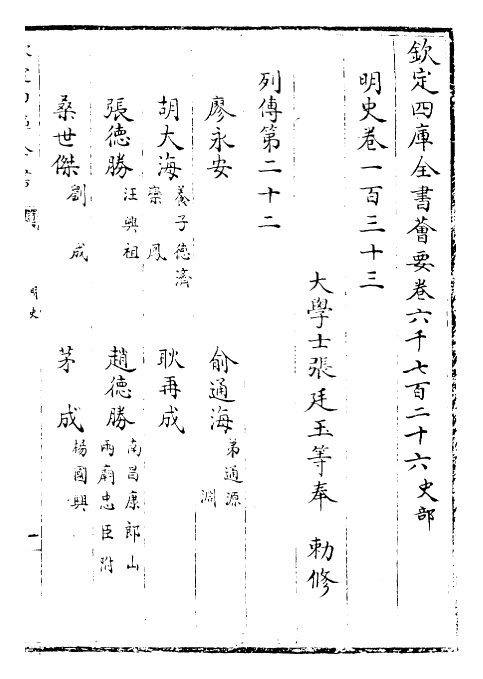 欽定四庫全書薈要卷六千七百二十六史部
明史卷一百三十三
大學士張廷玉等奉 勅修
列傳第二十二
廖永安 俞通海弟通源 淵
胡大海養子德濟 欒鳳 耿再成
張德勝汪興祖 趙德勝南昌康郎山兩廟忠臣附
桑世傑劉成 茅成楊國興
明史